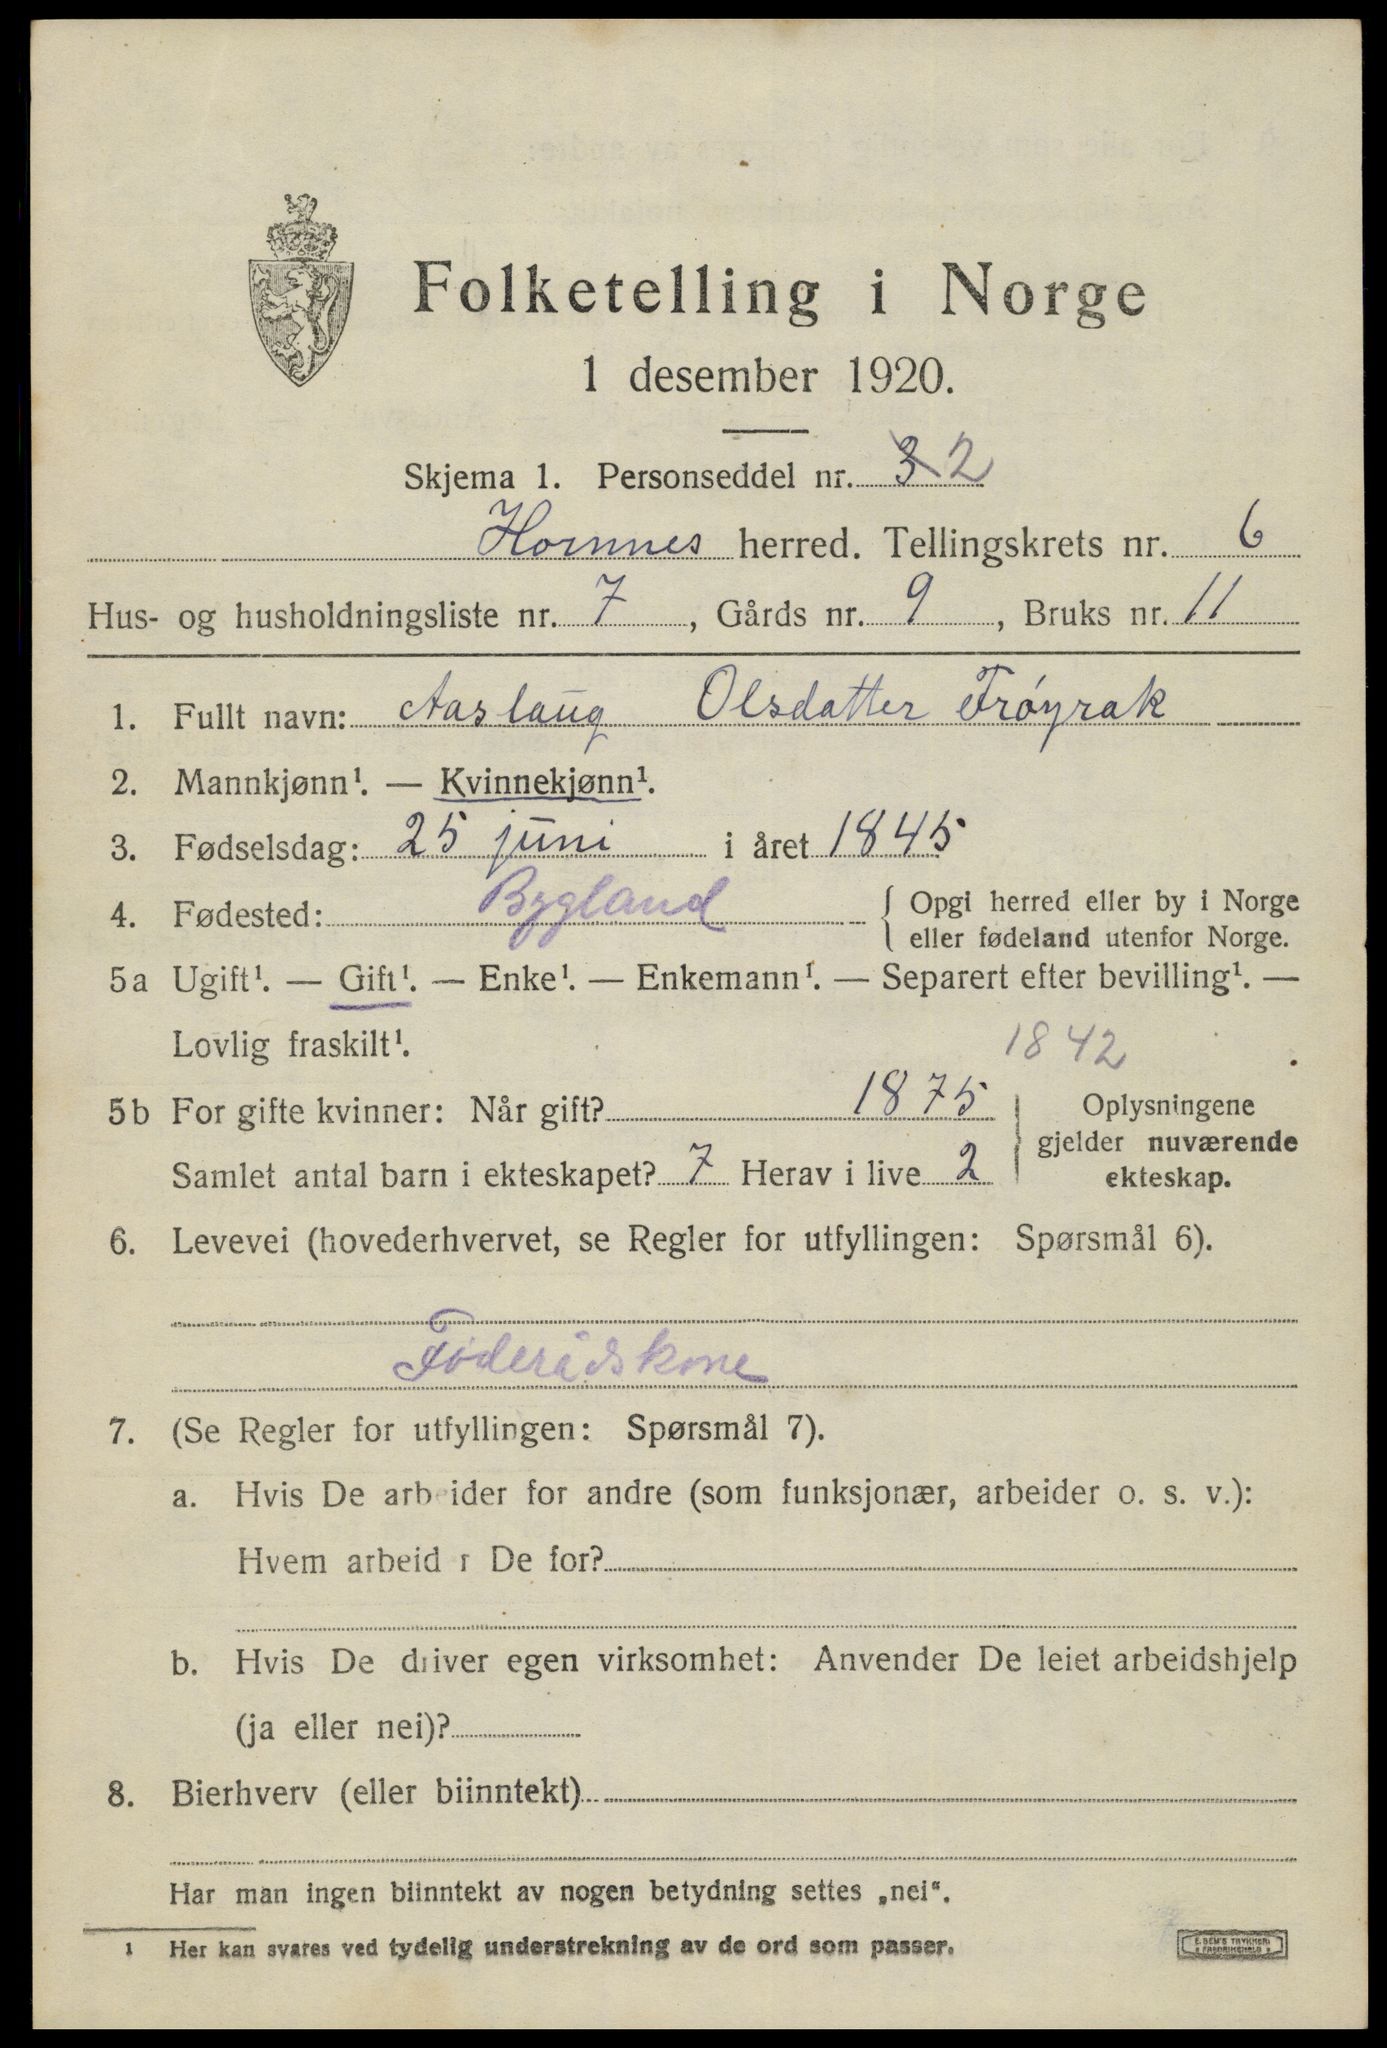 Folketelling i Norge
1 desember 1920.
Skjema 1. Personseddel nr. 3 2
Hornnes herred. Tellingskrets nr. 6
Hus- og husholdningsliste nr. 7, Gårds nr. 9, Bruks nr. 11
1. Fullt navn: Aaslaug Olsdatter Frøyrak
2. Mannkjønn¹. — Kvinnekjønn¹.
3. Fødselsdag: 25 juni i året 1845
4. Fødested: Bygland { Opgi herred eller by i Norge
eller fødeland utenfor Norge.
5a Ugift¹. — Gift¹. — Enke¹. — Enkemann¹. — Separert efter bevilling¹. —
Lovlig fraskilt¹. 1842
5b For gifte kvinner: Når gift? 1875 Oplysningene
gjelder nuværende
Samlet antal barn i ekteskapet? 7 Herav i live 2 ekteskap.
6. Levevei (hovederhvervet, se Regler for utfyllingen: Spørsmål 6).
Føderådskone
7. (Se Regler for utfyllingen: Spørsmål 7).
a. Hvis De arb ider for andre (som funksjonær, arbeider o. s. v.):
Hvem arbeid r De for?
b. Hvis De driver egen virksomhet: Anvender De leiet arbeidshjelp
(ja eller nei)?
8. Bierhverv (eller biinntekt)
Har man ingen biinntekt av nogen betydning settes „nei“.
1 Her kan svares ved tydelig understrekning av de ord som passer.
E. SEM'S TRYKKERI
FREDRIKSHALD